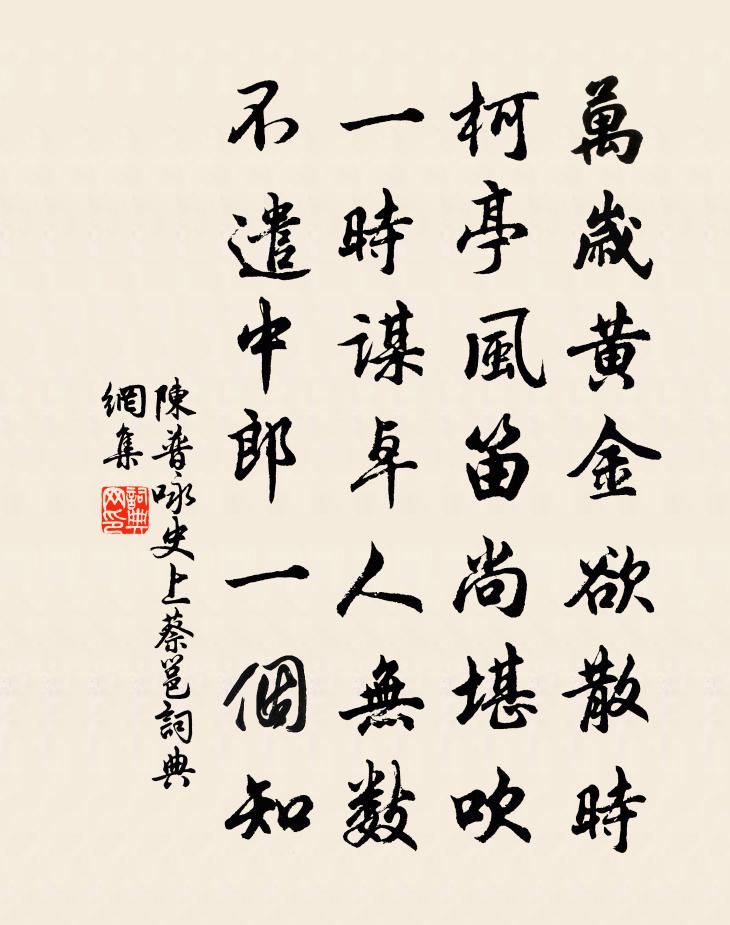 萬歲黃金欲散時
柯亭風笛尚堪吹
一時謀卓人無數
不遣中郎一個知
陳普詠史上蔡邕詞典
網集
詞典
网印